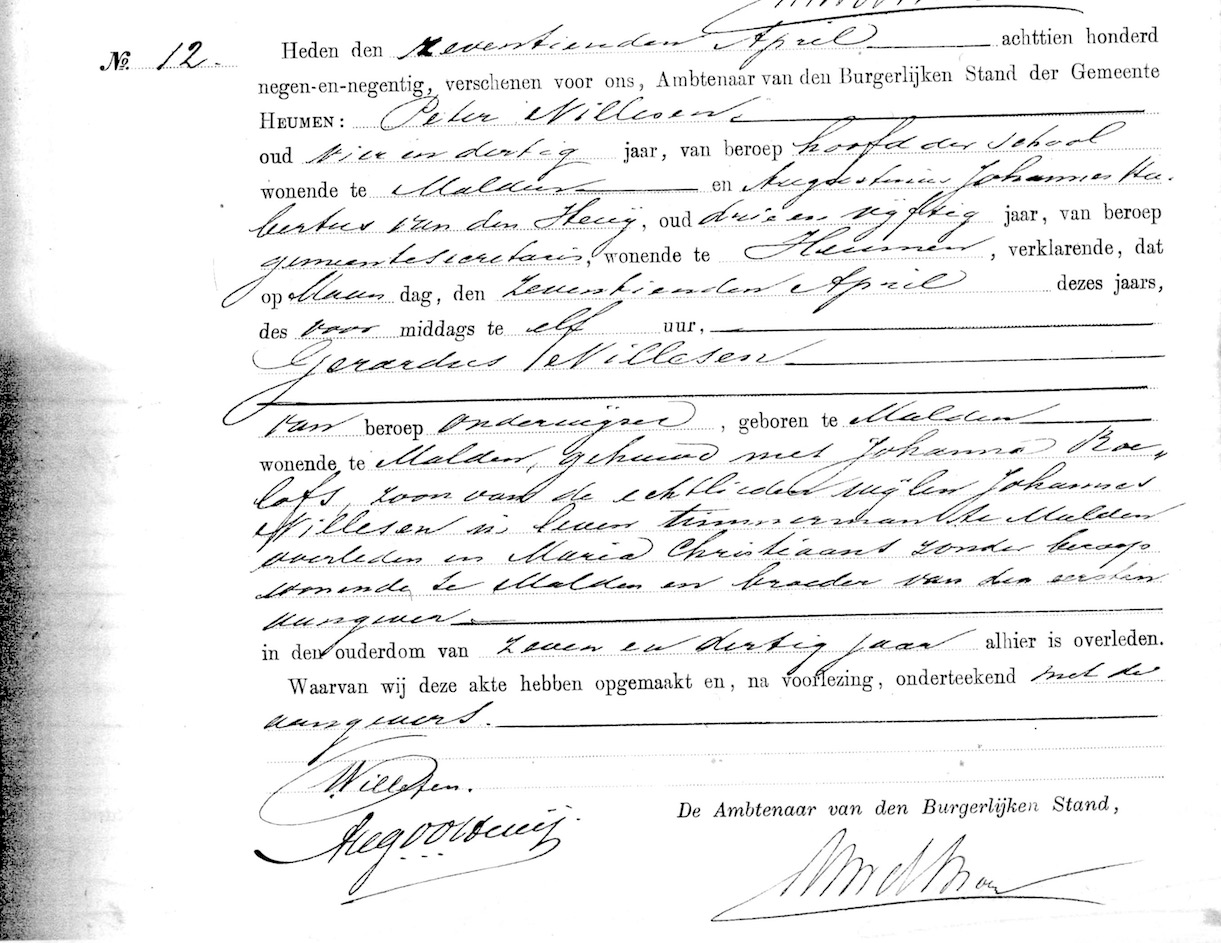 No. 12.
Heden den zeventienden April achttien honderd
negen-en-negentig, verschenen voor ons, Ambtenaar van den Burgerlijken Stand der Gemeente
HEUMEN: Peter Willesen,
oud vier en dertig jaar, van beroep hoofd der school
wonende te Malden en Augustinus Johannes Hu-
bertus van den Heuij, oud drie en vijftig jaar, van beroep
gemeentesecretaris, wonende te Heumen, verklarende, dat
op Maandag, den zeventienden April dezes jaars,
des voormiddags te elf uur,
Gerardus Willesen
van beroep onderwijzer, geboren te Malden
wonende te Malden, gehuwd met Johanna Roe-
lofs, zoon van de echtlieden wijlen Johannes
Willesen in leven timmerman te Malden
overleden en Maria Christiaans zonder beroep
wonende te Malden en broeder van den eersten
aangever
in den ouderdom van zeven en dertig jaar alhier is overleden.
Waarvan wij deze akte hebben opgemaakt en, na voorlezing, onderteekend met de
aangevers.
Willesen.
De Ambtenaar van den Burgerlijken Stand,